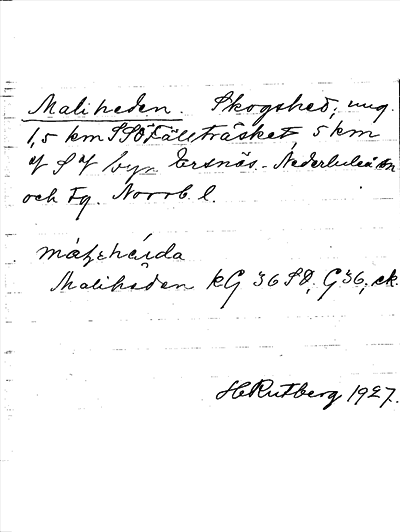 Maliheden. Skogshed, ung.
1,5 km SSÖ Fällträsket, 5 km
S byn Ersnäs. Nederluleå sn
och tg. Norrb. l.
Maliheden KG 36 SO, G 36, ek.
H Rutberg 1927.